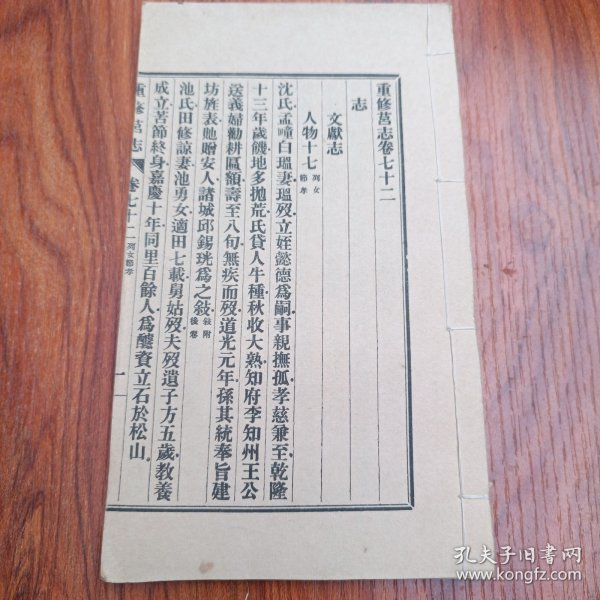 重修莒志卷七十二
志
文獻志
人物十七 列女 節孝
沈氏孟曈白瑥妻瑥歿立姪懿德為嗣事親撫孤孝慈兼至乾隆
十三年歲饑地多拋荒氏貸人牛種秋收大熟知府李知州王公
送義婦勸耕匾額壽至八旬無疾而歿道光元年孫其統奉旨建
坊旌表貤贈安人諸城邱錫珖為之敍 敍附 後卷
池氏田修諒妻池勇女適田七載舅姑歿夫歿遺子方五歲教養
成立苦節終身嘉慶十年同里百餘人為醵資立石於松山
重修莒志 卷七十二 列女節孝 一
孔夫子旧书网
www.kongfz.com